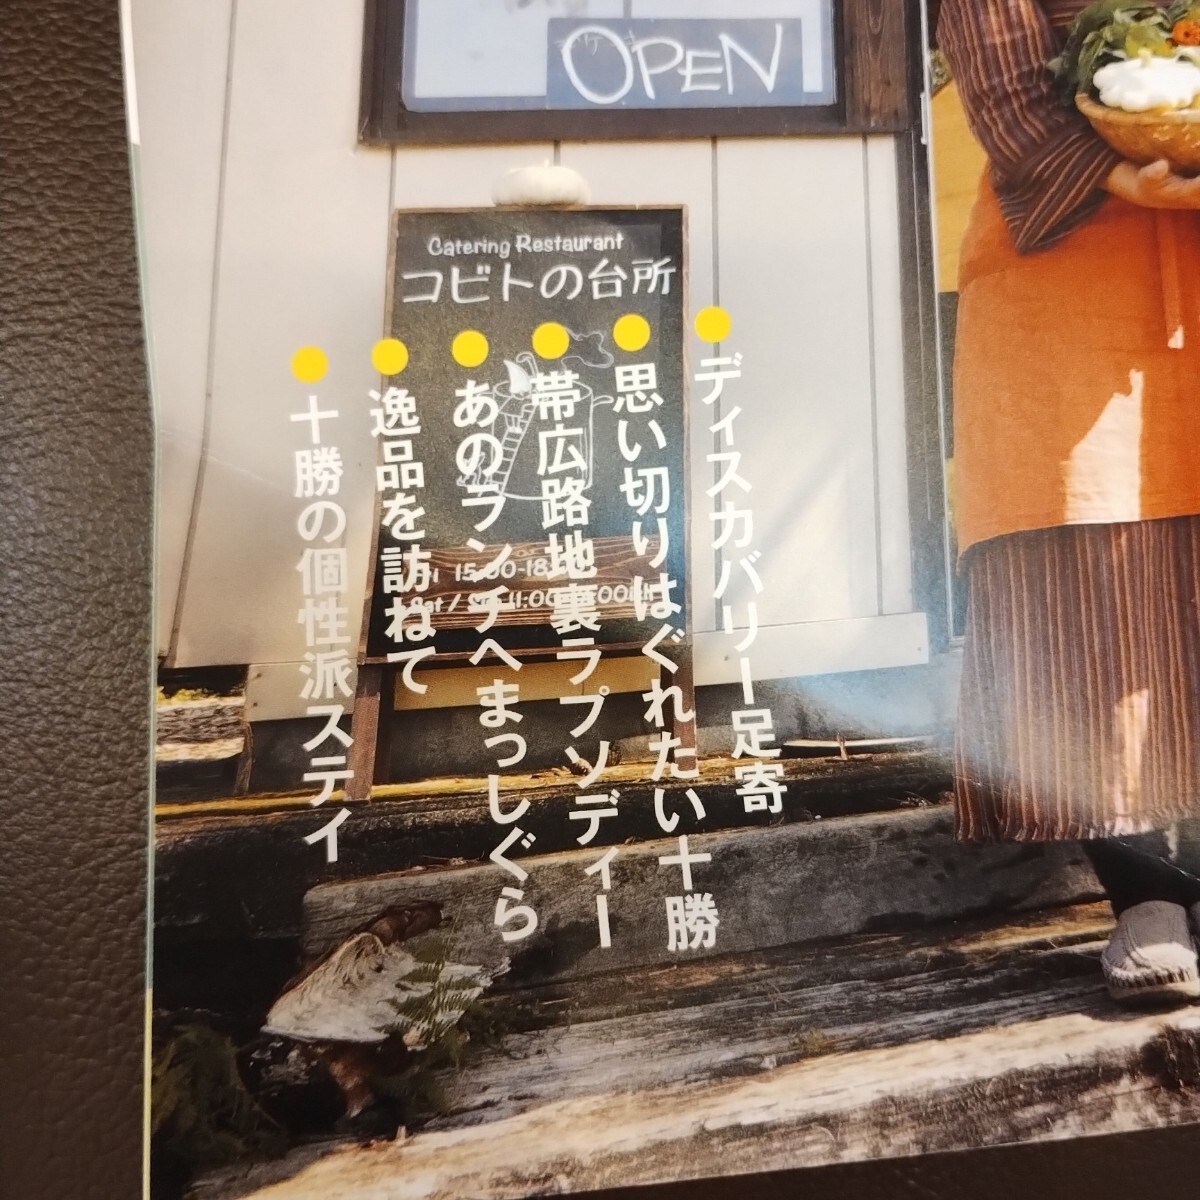 OPEN
Catering Restaurant
コビトの台所
15:00-18
Sat / 11:00
ディスカバリー足寄
思い切りはぐれたい十勝
帯広路地裏ラプソディー
あのランチへまっしぐら
逸品を訪ねて
十勝の個性派ステイ